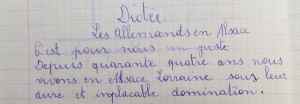 Dictée
Les Allemands en Alsace
C'est pour nous un juste
Depuis quarante quatre ans nous
vivons en Alsace Lorraine sous leur
dure et implacable domination.